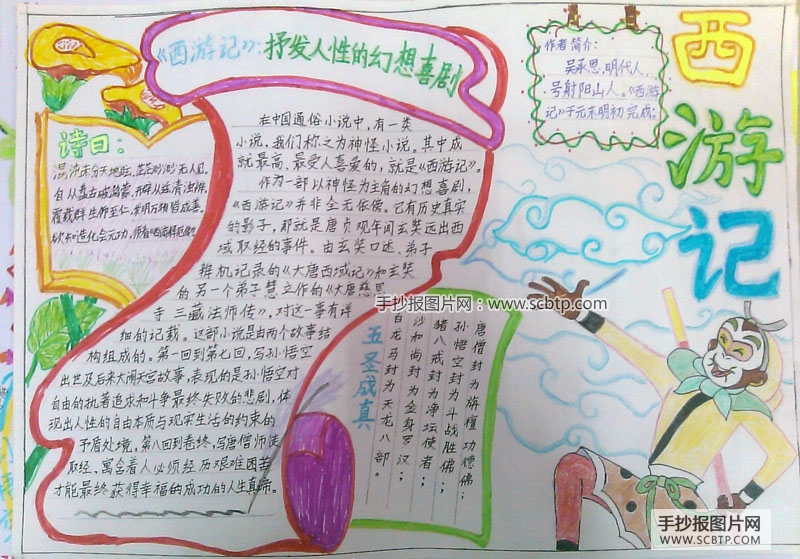 西游记
《西游记》：抒发人性的幻想喜剧
作者简介：
吴承恩，明代人，
号射阳山人。《西游
记》于元末明初完成；
诗曰：
混沌未分天地乱，茫茫渺渺无人见。
自从盘古破鸿蒙，开辟从兹清浊辨。
覆载群生仰至仁，发明万物皆成善。
欲知造化会元功，
在中国通俗小说中，有一类
小说，我们称之为神怪小说。其中成
就最高、最受人喜爱的，就是《西游记》。
作为一部以神怪为主角的幻想喜剧，
《西游记》并非全无依傍。已有历史真实
的影子，那就是唐贞观年间玄奘远出西
域取经的事件。由玄奘口述、弟子
辨机记录的《大唐西域记》和玄奘
的另一个弟子慧立作的《大唐慈恩
寺三藏法师传》，对这一事有详
细的记载。这部小说是由两个故事结
构组成的。第一回到第七回，写孙悟空
出世及后来大闹天宫故事，表现的是孙悟空对
自由的执著追求和斗争最终失败的悲剧，体
现出人性的自由本质与现实生活的约束的
矛盾处境。第八回到卷终，写唐僧师徒
取经、寓含着人必须经历艰难困苦
才能最终获得幸福纳成功的人生真谛。
五圣成真
唐僧封为旃檀功德佛；
孙悟空封为斗战胜佛；
猪八戒封为净坛使者；
沙和尚封为金身罗汉；
白龙马封为天龙八部。
手抄报图片网：www.scbtp.com
手抄报图片网
WWW.SCBTP.COM